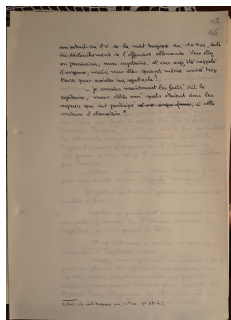 un extrait du P.V. de la nuit tragique du 10 Mai, date
du déclenchement de l'offensive allemande. Vous étiez
en permission, mon capitaine, et vous avez été rappelé
d'urgence, mais vous êtes quand même arrivé trop
tard pour assister au spectacle !
- Je connais maintenant les faits, dit le
capitaine, mais dites moi quels étaient donc les
équipages qui ont participé à cette
mission d'observation ?